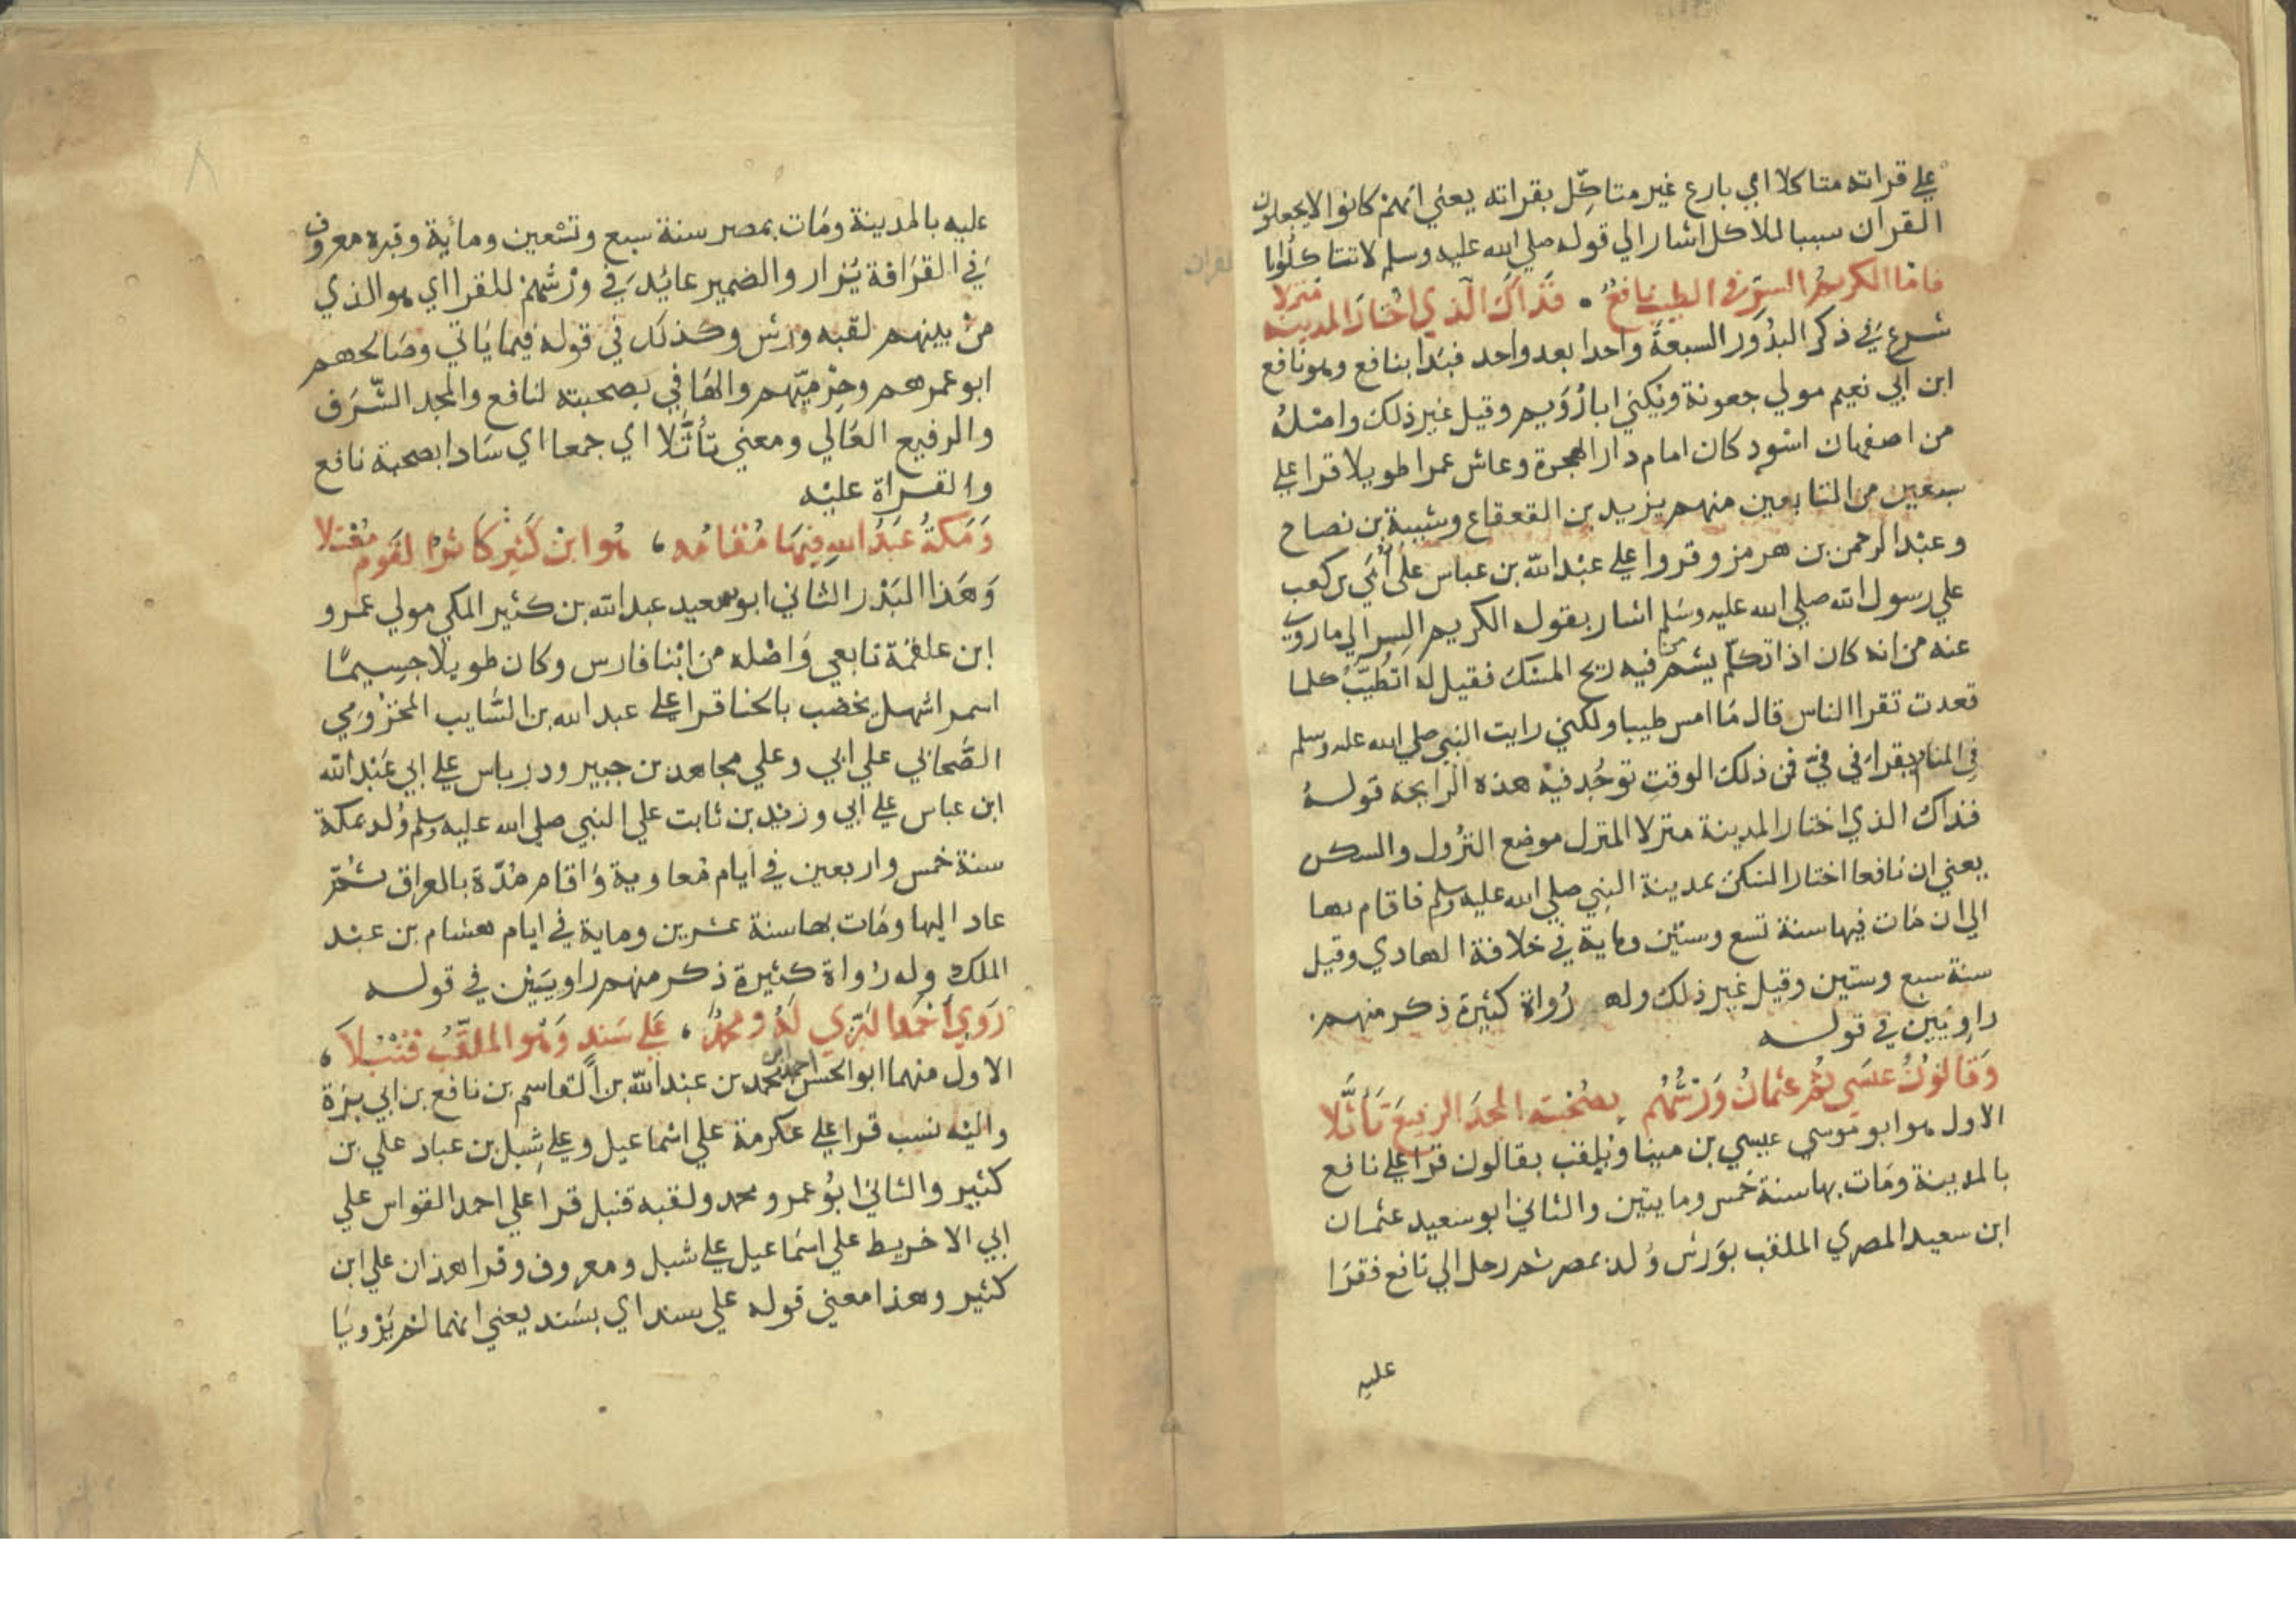 على قراته متاكلا اي بارع غير متاكل بقراته يعني انهم كانوا لا يجعلون
القران سببا للاكل اشار الي قوله صلي الله عليه وسلم لا تتاكلوا
فاما الكريم السر في الطيب نافع • فذاك الذي اختار المدينة منزلا
شرع في ذكر البدور السبعة واحدا بعد واحد فبدا بنافع وهو نافع
ابن ابي نعيم مولي جعونة ويكني ابا رُوَيم وقيل غير ذلك واصله
من اصفهان اسود كان امام دار الهجرة وعاش عمرا طويلا قرا علي
سبعين من التابعين منهم يزيد بن القعقاع وشيبة بن نصاح
وعبد الرحمن بن هرمز وقروا علي عبد الله بن عباس على اُبَي بن كعب
علي رسول الله صلي الله عليه وسلم اشار بقوله الكريم السر الي ما روي
عنه من انه كان اذا تكلم يشم من فيه ريح المسك فقيل له اتطيب كلما
قعدت تقرا الناس قال ما امس طيبا ولكني رايت النبي صلي الله عليه وسلم
في المنام يقرا في فيّ فمن ذلك الوقت توجد فيه هذه الرايحة قوله
فذاك الذي اختار المدينة منزلا المنزل موضع النزول والسكن
يعني ان نافعا اختار السكن بمدينة النبي صلي الله عليه وسلم فاقام بها
الي ان مات فيها سنة تسع وستين وماية في خلافة الهادي وقيل
سنة سبع وستين وقيل غير ذلك وله رُواة كثيرة ذكر منهم
راويين في قوله
وقالون عيسي ثم عثمان ورشهم بصحبته المجد الرفيع تأثلا
الاول هو ابو موسي عيسي بن مينا ويلقب بقالون قرا علي نافع
بالمدينة ومات بها سنة خمس ومايتين والثاني ابو سعيد عثمان
ابن سعيد المصري الملقب بورش ولد بمصر ثم رحل الي نافع فقرا
عليه
٨
عليه بالمدينة ومات بمصر سنة سبع وتسعين ومائة وقبره معروف
في القرافة يُزار والضمير عائد في ورشهم للقرا اي هو الذي
من بينهم لقبه ورش وكذلك في قوله فيما ياتي وصالحهم
ابو عمرهم وحِرْميّهم والها في بصحبته لنافع والمجد الشرف
والرفيع العالي ومعني تأثّلا اي جمعا اي سادا بصحبة نافع
والقراة عليه
وَمَكةُ عبدُ الله فيها مُقامه ، هُوا ابنُ كَثير كاثر القوم مُعْتلا
وهذا البدر الثاني ابو سعيد عبد الله بن كثير المكي مولي عمرو
ابن علقمة تابعي واصله من ابنا فارس وكان طويلا جسيما
اسمر اشهل يخضب بالحنا قرا علي عبد الله بن السّايب المخزومي
الصّحابي علي ابي وعلي مجاهد بن جبير ودرباس علي ابي عبد الله
ابن عباس علي ابي وزيد بن ثابت علي النبي صلي الله عليه وسلم ولد بمكة
سنة خمس واربعين في ايام معاوية واقام مُدّة بالعراق ثمّ
عاد اليها ومات بها سنة عشرين وماية في ايام هشام بن عبد
الملك وله رُواة كثيرة ذكر منهم راويَين في قوله
رَوي احمد البزي له ومحمد ، علي سَند وَهُوا الملقّبُ قنبلا ،
الاول منهما ابو الحسن احمد ابن محمد بن عبد الله بن القاسم بن نافع بن ابي بزة
واليه نسب قرا علي عكرمة علي اسماعيل وعلي شِبل بن عباد علي بن
كثير والثاني ابُو عمرو محمد ولقبه قنبل قرا علي احمد القواس علي
ابي الاخريط علي اسماعيل علي شبل ومعروف وقرا هذان علي ابن
كثير وهذا معني قوله علي سند اي بسند يعني انهما لم يَرْويَا